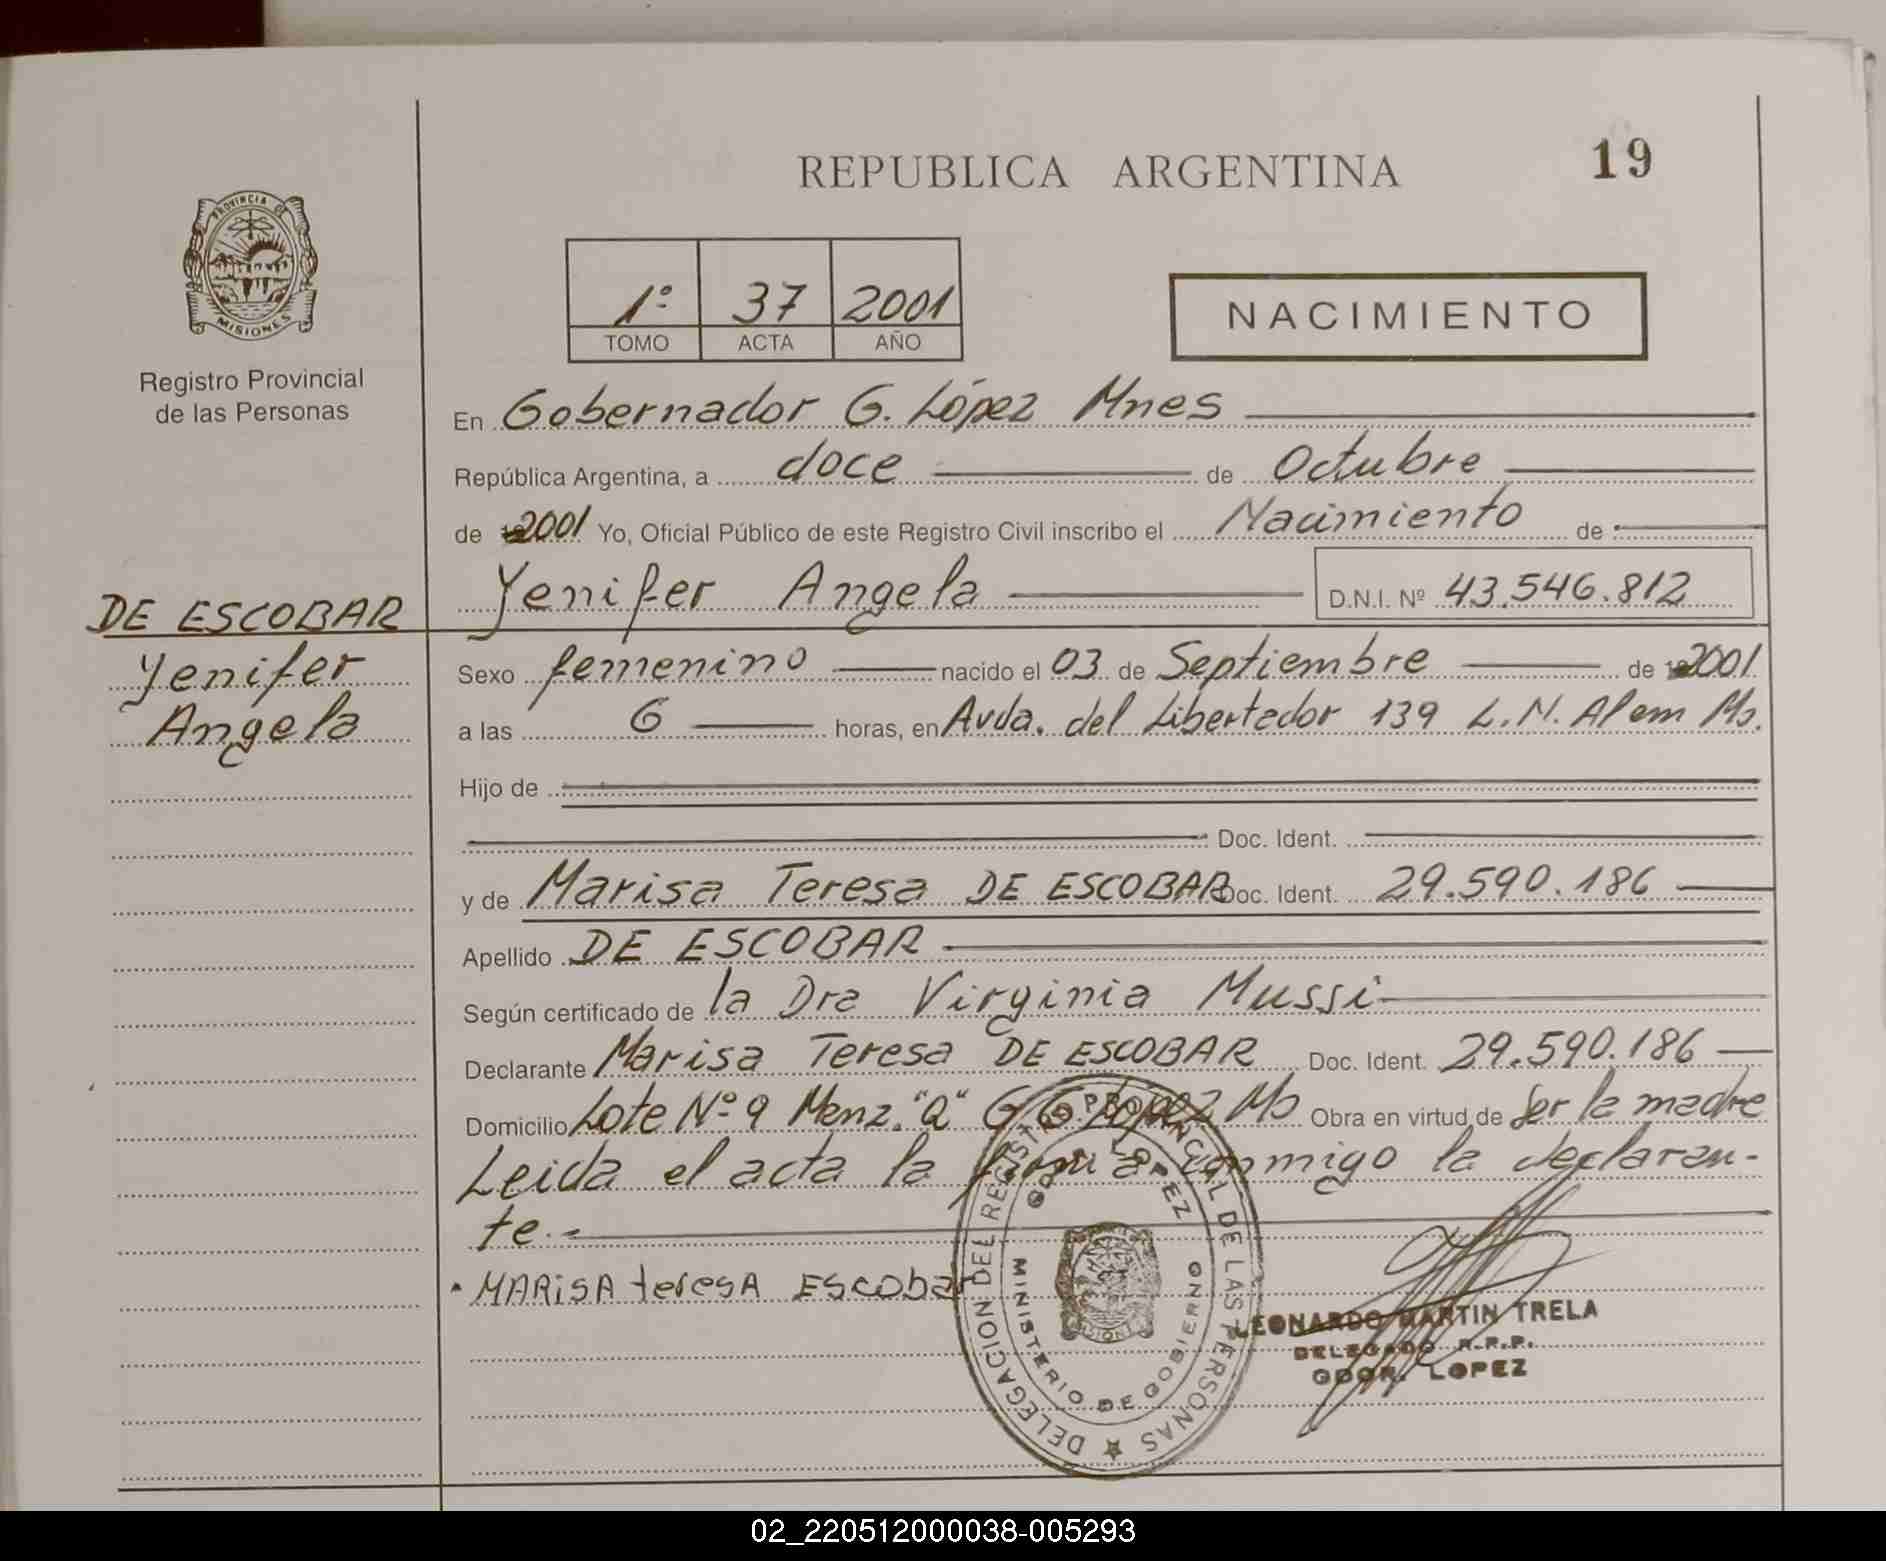 REPUBLICA ARGENTINA
19
PROVINCIA DE
MISIONES
Registro Provincial
de las Personas
1º 37 2001
TOMO ACTA AÑO
NACIMIENTO
En Gobernador G. López Mnes
República Argentina, a doce de Octubre
de 2001 Yo, Oficial Público de este Registro Civil inscribo el Nacimiento de
Yenifer Angela D.N.I. Nº 43.546.812
DE ESCOBAR
Yenifer
Angela
Sexo femenino nacido el 03 de Septiembre de 2001
a las 6 horas, en Avda. del Libertador 139 L.N. Alem Ms.
Hijo de
Doc. Ident.
y de Marisa Teresa DE ESCOBAR Doc. Ident. 29.590.186
Apellido DE ESCOBAR
Según certificado de la Dra Virginia Mussi
Declarante Marisa Teresa DE ESCOBAR Doc. Ident. 29.590.186
Domicilio Lote Nº 9 Manz. "Q" G. G. López Ms Obra en virtud de ser la madre
Leida el acta la firma conmigo la declaran-
te.
MARiSA teresA EScobar
DELEGACION DEL REGISTRO PROVINCIAL DE LAS PERSONAS
GDOR. LOPEZ
MINISTERIO DE GOBIERNO
LEONARDO MARTIN TRELA
DELEGADO R.P.P.
GDOR. LOPEZ
02_220512000038-005293